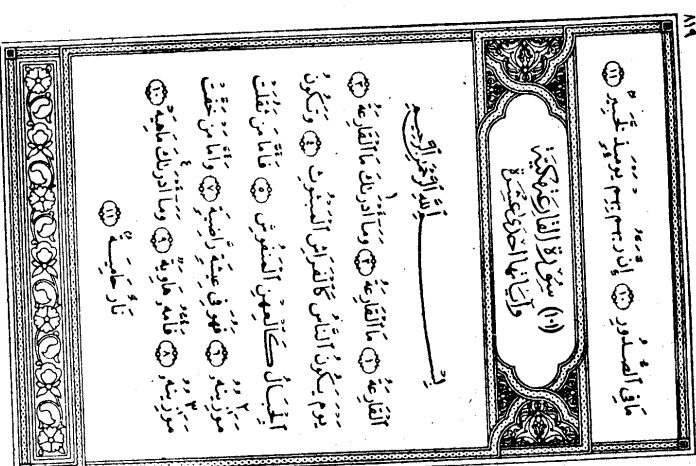 ٨١٩
مَا فِى ٱلصُّدُورِ ۝١٠ إِنَّ رَبَّهُم بِهِمْ يَوْمَئِذٍ لَّخَبِيرٌ ۝١١
(١٠١) سُورَةُ القَارِعَةِ مَكِّيَّة
وَآيَاتُهَا إِحْدَى عَشَرَة
بِسْمِ ٱللَّهِ ٱلرَّحْمَٰنِ ٱلرَّحِيمِ
ٱلْقَارِعَةُ ۝١ مَا ٱلْقَارِعَةُ ۝٢ وَمَآ أَدْرَىٰكَ مَا ٱلْقَارِعَةُ ۝٣
يَوْمَ يَكُونُ ٱلنَّاسُ كَٱلْفَرَاشِ ٱلْمَبْثُوثِ ۝٤ وَتَكُونُ
ٱلْجِبَالُ كَٱلْعِهْنِ ٱلْمَنفُوشِ ۝٥ فَأَمَّا مَن ثَقُلَتْ
مَوَٰزِينُهُۥ ۝٦ فَهُوَ فِى عِيشَةٍ رَّاضِيَةٍ ۝٧ وَأَمَّا مَنْ خَفَّتْ
مَوَٰزِينُهُۥ ۝٨ فَأُمُّهُۥ هَاوِيَةٌ ۝٩ وَمَآ أَدْرَىٰكَ مَا هِيَهْ ۝١٠
نَارٌ حَامِيَةٌۢ ۝١١